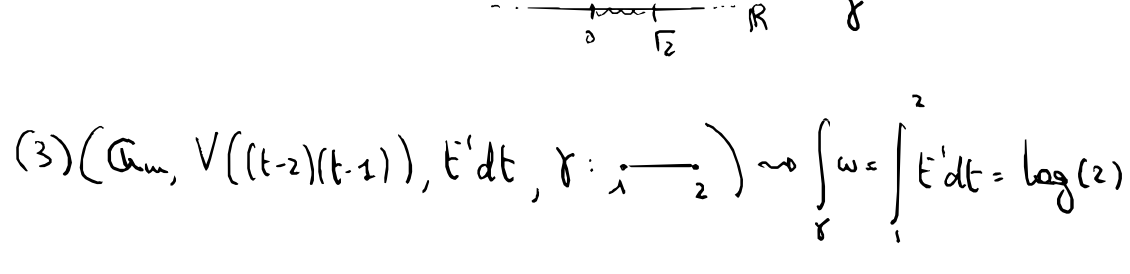 0 √2 ℝ γ
(3) (𝔾m, V((t-2)(t-1)), t⁻¹dt, γ: 1 2) ⇝ ∫_γ ω = ∫_1^2 t⁻¹dt = log(2)